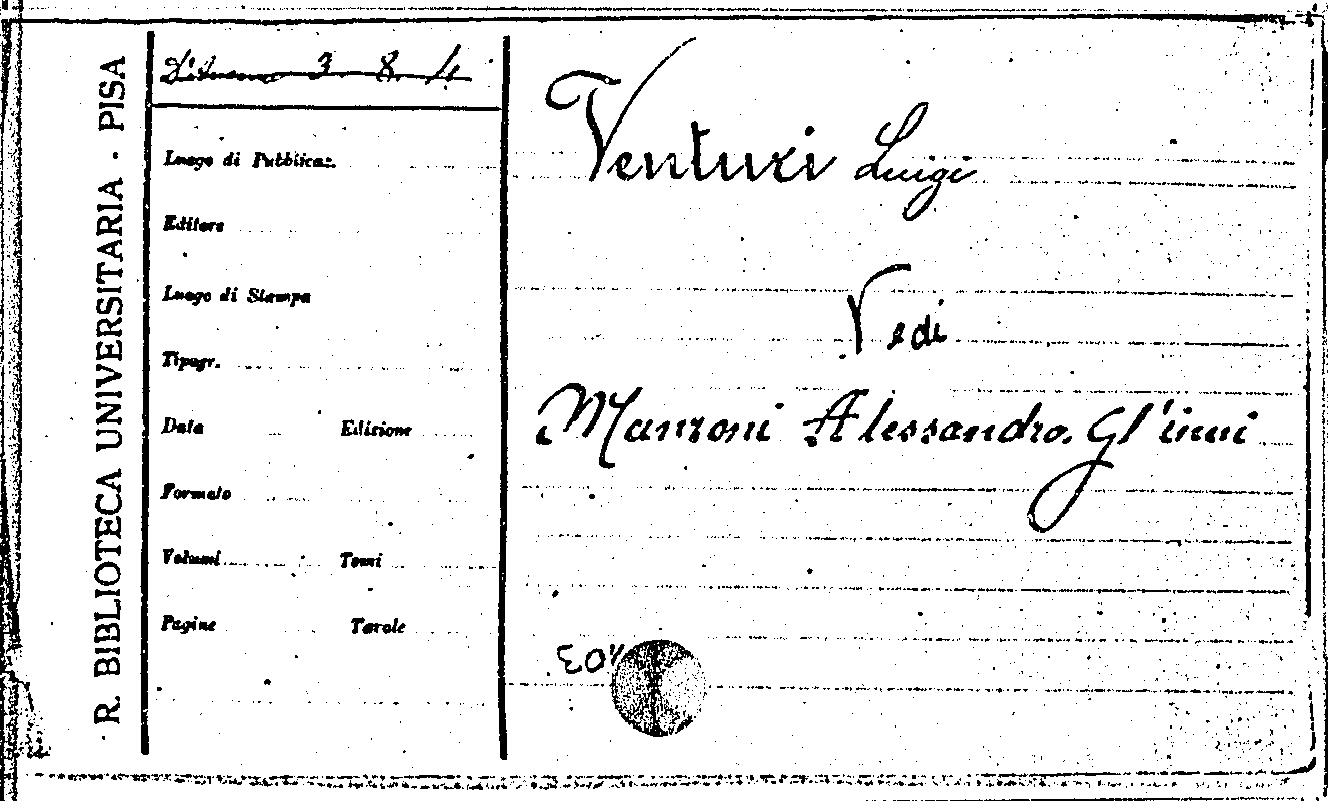 R. BIBLIOTECA UNIVERSITARIA - PISA
3. 8. 4.
Luogo di Pubblicaz.
Editore
Luogo di Stampa
Tipogr.
Data Edizione
Formato
Volumi Tomi
Pagine Tavole
Venturi Luigi
Vedi
Manzoni Alessandro. Gl'inni